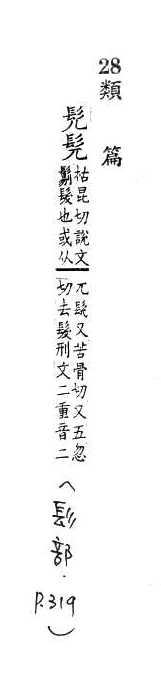 28
類篇
髡髠
枯昆切說文
鬄髮也或从
兀髡又苦骨切又五忽
切去髮刑文二重音二
(髟部.
P.319)